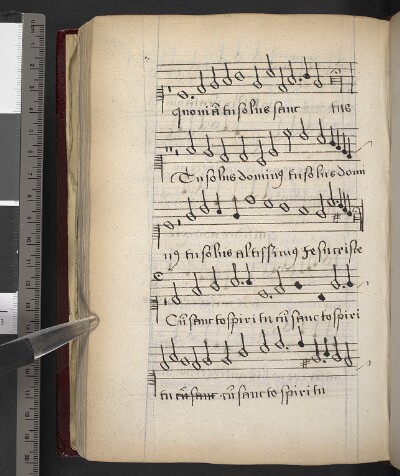 quoniā tu solus sanc tus
Tu solus dominꝰ tu solus domi
nꝰ tu solus altissimꝰ Jesu criste
Cū sancto spiritu cū sancto spiri
tu cū sanc cū sancto spiritu